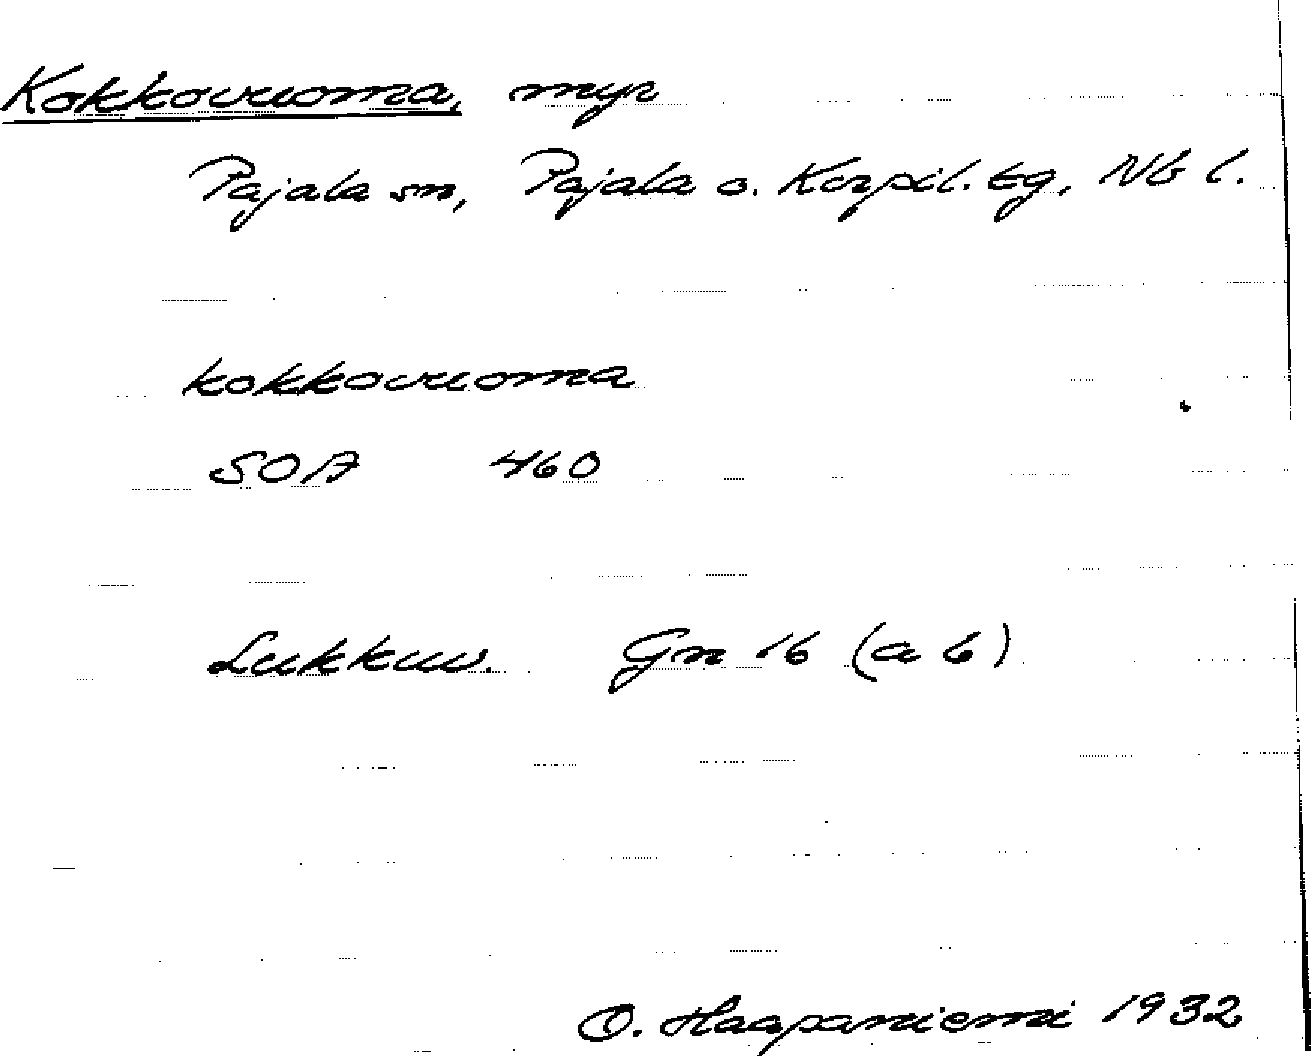 Kokkovuoma, myr
Pajala sn, Pajala o. Korpil. tg, Nb l.
kokkovuoma
SOA 460
Lukkuv. Gn 16 (a b)
O. Haapaniemi 1932